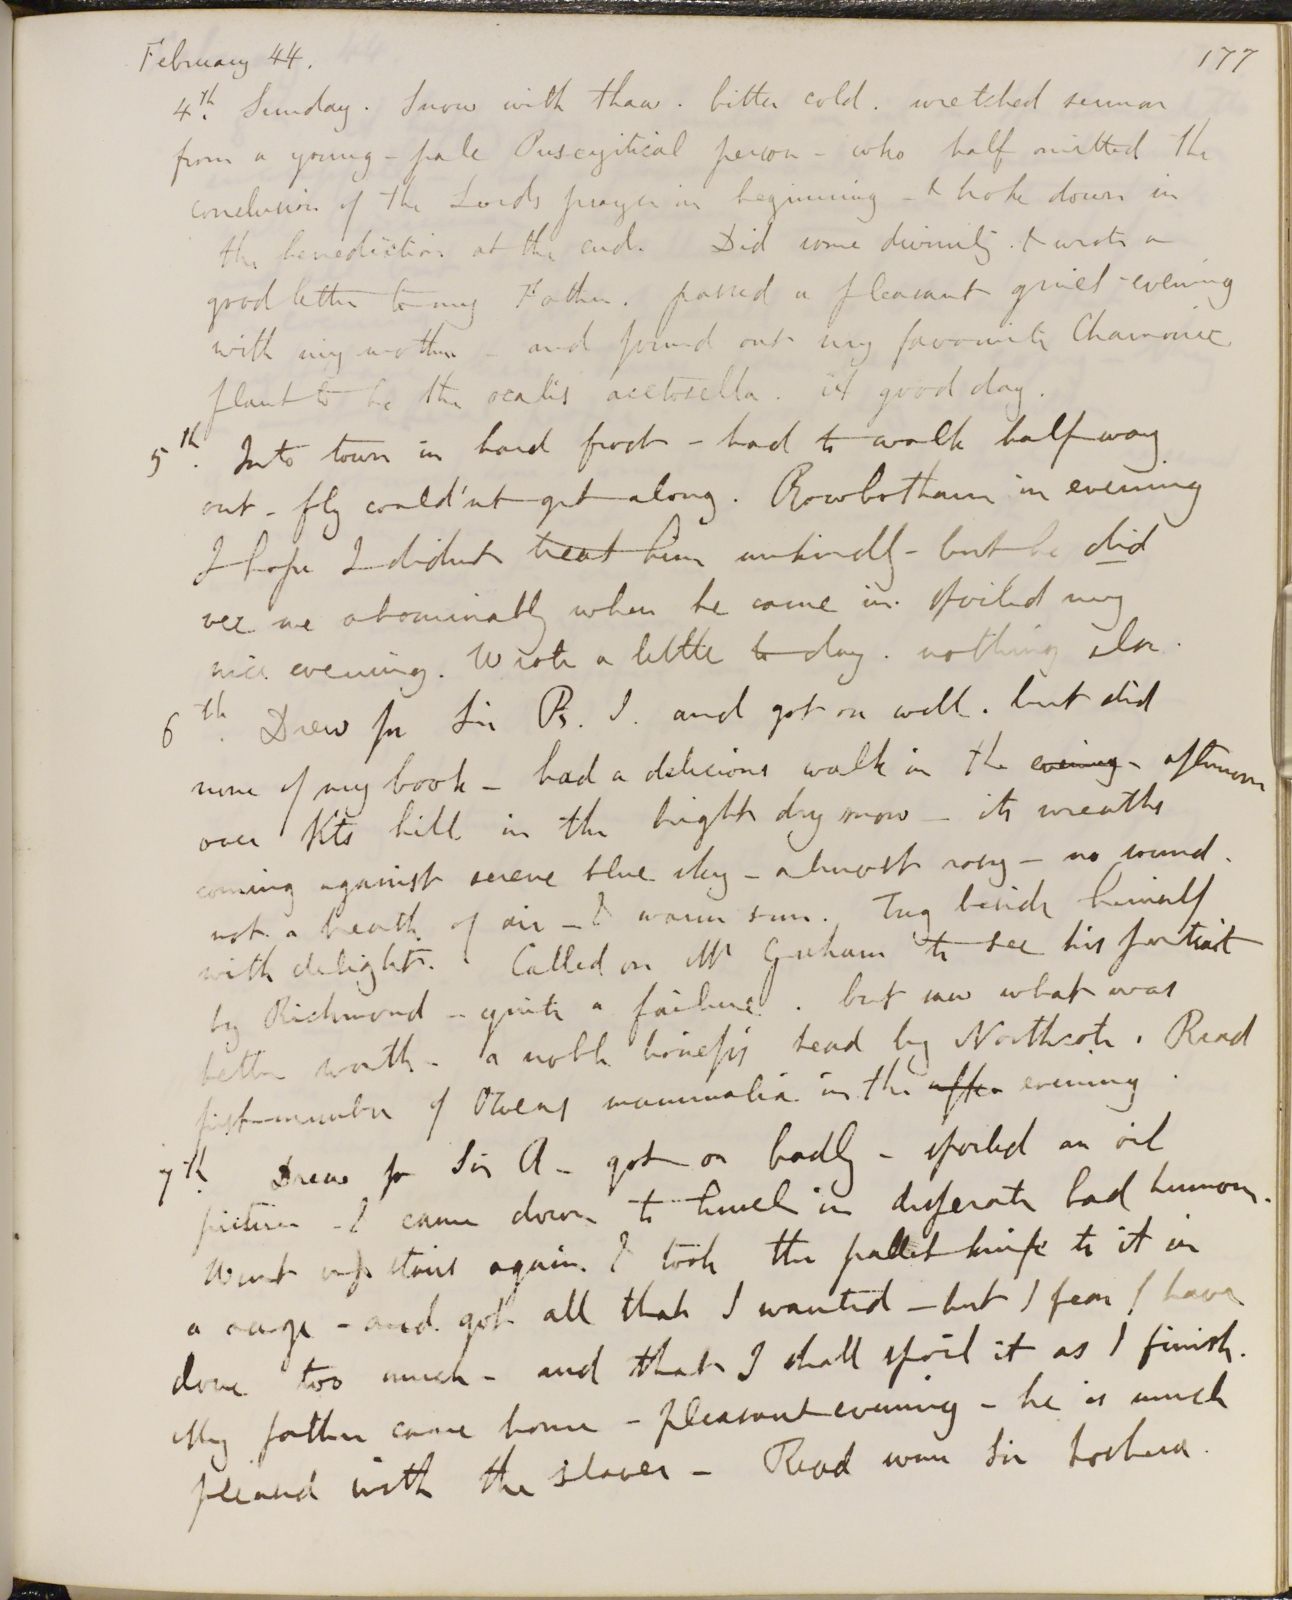 February 44.
177
4th. Sunday. Snow with thaw. bitter cold. wretched sermon
from a young - pale Puseyitical person - who half omitted the
conclusion of the Lords prayer in beginning - & broke down in
the benediction at the end. Did some divinity. & wrote a
good letter to my Father. passed a pleasant quiet evening
with my mother - and found out my favourite Chamonix
plant to be the oxalis acetosella. A good day.
5th. Into town in hard frost - had to walk half way
out - fly could'nt get along. Rowbotham in evening
I hope I didnt treat him unkindly - but he did
vex me abominably when he came in. spoiled my
nice evening. Wrote a little to day. nothing else.
6th. Drew for Sir R. I. and got on well. but did
none of my book - had a delicious walk in the evening - afternoon
over hill in the bright dry snow - its wreaths
coming against serene blue sky - almost rosy - no wind.
not a breath of air - & warm sun. Tug beside himself
with delight. Called on Mr Graham to see his portrait
by Richmond - quite a failure. but saw what was
better worth - a noble head by Northcote. Read
first number of Owens mammalia in the after evening.
7th. Drew for Sir R - got on badly - spoiled an oil
picture - & came down to lunch in desperate bad humour.
Went up stairs again & took the pallet knife to it in
a rage - and got all that I wanted - but I fear I have
done too much - and that I shall spoil it as I finish.
My father came home - pleasant evening - he is much
pleased with the slaver - Read some Sir